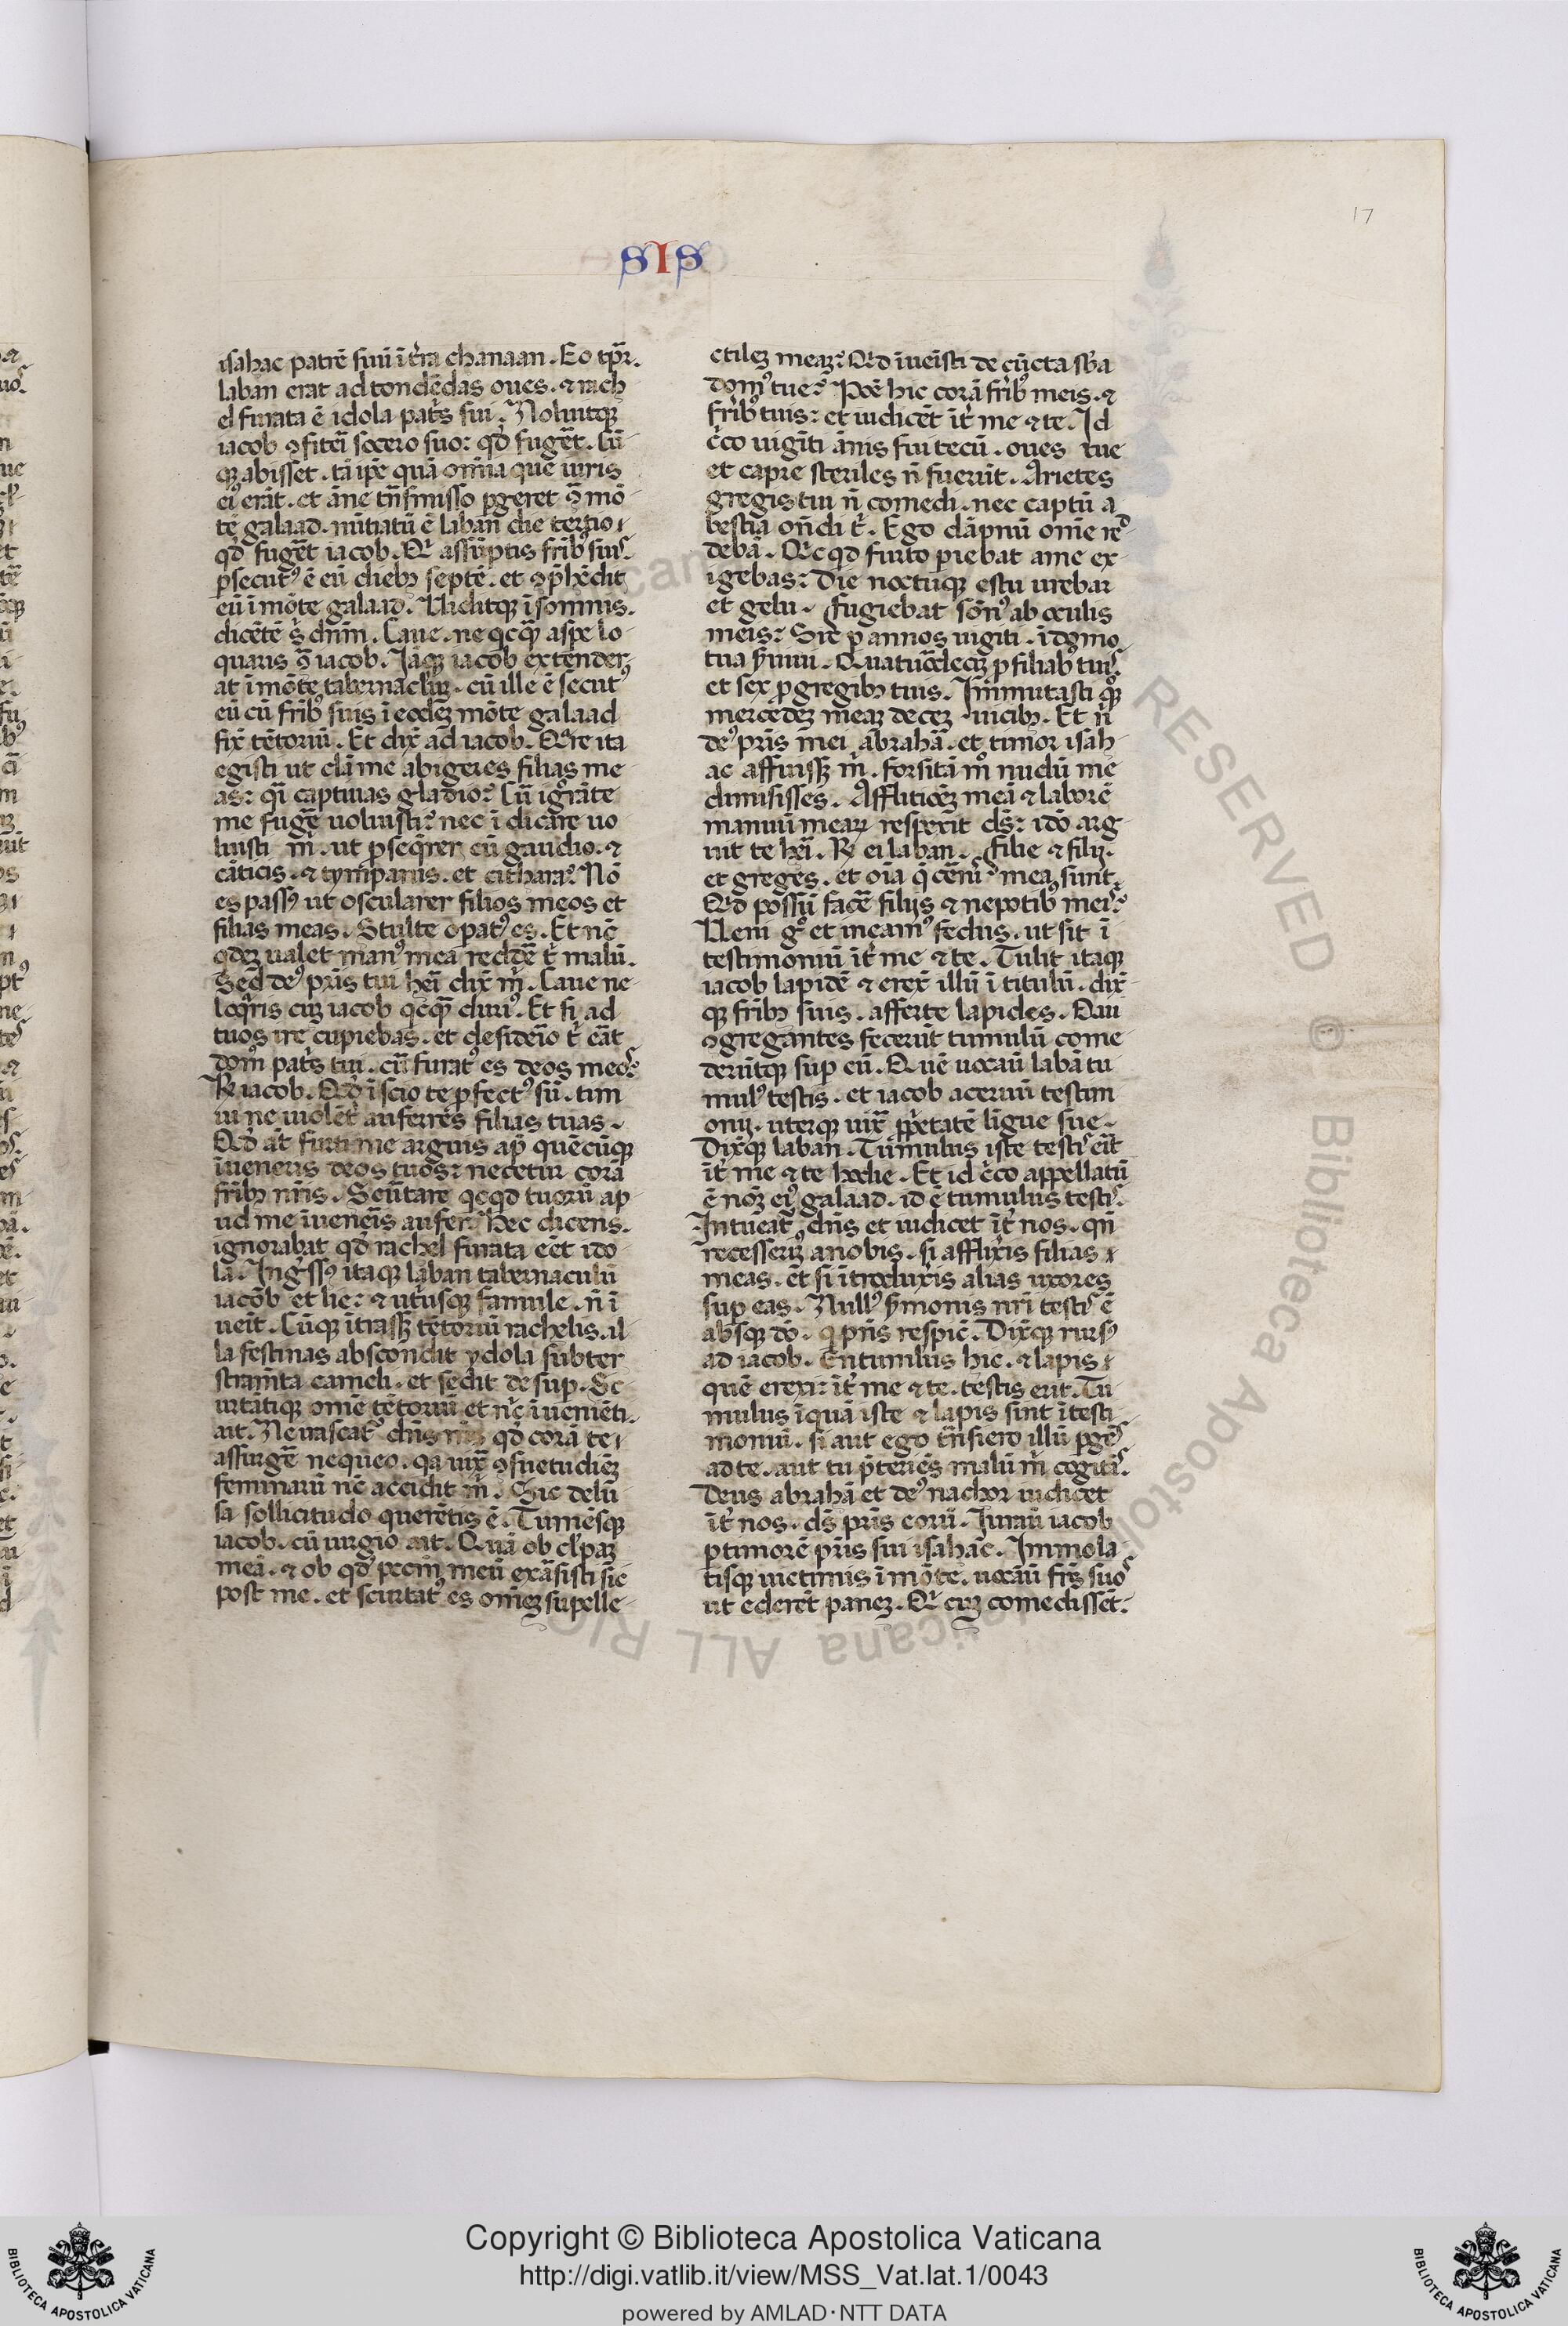 17
SIS
isahac patrē suū ī t̄ra chanaan. Eo tp̄r.
laban erat ad tondēdas oues. ⁊ rach
el furata ē idola pat̄s sui. Noluitqꝫ
iacob ꝯfiteri socero suo: qđ fugēt. Cū
qꝫ abisset. tā ip̄e quā om̄ia que iuris
eiꝰ erāt. et āne tn̄smisso ꝑgeret ꝯ̄ mō-
tē galaad. nūtiatū ē laban die tertio
qđ fugēt iacob. Qi assūptis fribꝰ suis.
ꝑsecutꝰ ē eū diebꝫ septē. et ꝯp̄hēdit
eū ī mōte galaad. Uiditqꝫ ī somnis.
dicētē s̄ dn̄m. Caue. ne qcqꝫ̄ aspe lo-
quaris ꝯ̄ iacob. Iāqꝫ iacob extender-
at ī mōte tabernaclm̄. cū ille ē secutꝰ
eū cū fribꝰ suis ī eodēꝫ mōte galaad
fix̄ tētoriū. Et dix̄ ad iacob. Qͬre ita
egisti ut clā me abigeres filias me
as: q̄i captiuas gladio? Cū igͬrāte
me fugē uoluisti? nec ī dicare uo
luisti m̄. ut ꝓseqͬrer cū gaudio. ⁊
cāticis. ⁊ tympanis. et cithara? Nō
es passꝰ ut oscularer filios meos et
filias meas. Stulte opatꝰ es. Et nc̄
qͥdeꝫ ualet manꝰ mea reddē t̄ malū.
Sed deꝰ pris̄ tui heri dix̄ m̄. Caue ne
loqͬris cuꝫ iacob qcqꝫ̄ duriꝰ. Et si ad
tuos ire cupiebas. et desideīo t̄ eāt
domꝰ pat̄s tui. cūr furatꝰ es deos meos?
R̄ iacob. Qđ īscio te ꝓfectꝰ sū. tim
ui ne uiolēt̄ auferres filias tuas.
Qđ āt furti me arguis ap̄ quēcūqꝫ
īueneris deos tuos: necetur corā
fribꝫ nr̄is. Scūtare qcqd tuorū ap
ud me īuenēis aufer. Hec dicens.
ignorabat qđ rachel furata eēt ido-
la. Ingͬssꝰ itaqꝫ laban tabernaculū
iacob et lie: ⁊ utͥusqꝫ famule. n̄ ī
ueīt. Cūqꝫ itrassꝫ tētoriū rachelis. il
la festinās abscondit ydola subter
stram̄ta cameli. et sedit desuꝑ. Sc-
urtātiqꝫ omē tētoriū et nͥc̄ īueniēti.
ait. Ne irascat̄ꝰ dn̄s mīs qđ corā te
assurgē nequeo. qͥa iux̄ ꝯsuetudīēꝫ
feminarū nc̄ accidit m̄. Sic delu-
sa sollicitudo querētis ē. Tumēsqꝫ
iacob. cū iurgio ait. Quā ob cl̄paꝫ
meā. ⁊ ob qđ pccm̄ meū exāsisti sic
post me. et scurtatꝰ es om̄eꝫ supelle-
ctileꝫ meaꝫ? Qđ īueīsti de cūcta sb̄a
domꝰ tue? Poē hic corā fribꝰ meis. ⁊
fribꝰ tuis: et iudicēt īt̄ me ⁊ te. Id
c̄co uigīti ānis fui tecū. oues tue
et capre steriles n̄ fuerūt. Arietes
gregis tui n̄ comedi. nec captū a
bestia on̄di t̄. Ego dāpnū omē red-
debā. Qͥcqd furto ꝑiebat a me ex-
igebas: Die noctuqꝫ estu urebar
et gelu. fugiebat sōnꝰ ab oculis
meis: Sic ꝑ annos uigīti. ī domo
tua s̄uiui. Quatuōdeciꝫ ꝓ filiabꝰ tuis.
et sex ꝓ gregibꝫ tuis. Immutasti qꝫ̄
mercēdeꝫ meaꝫ deceꝫ uicibꝫ. Et n̄
deꝰ pris̄ mei abrahā. et timor isah
ac affuissꝫ m̄. forsitā mͦ nudū me
dimisisses. Afflictiōeꝫ meā ⁊ laborē
manuū meaꝝ respexit ds̄: idō arg
uit te heri. R̄ ei laban. Filie ⁊ filij.
et greges. et oīa q̄ cēnis mea sunt.
Qđ possū facē filijs ⁊ nepotibꝰ meis?
Ueni gͦ et ineamꝰ fedus. ut sit ī
testimoniū īt̄ me ⁊ te. Tulit itaqꝫ
iacob lapidē ⁊ erex̄ illū ī titulū. dix̄
qꝫ fribꝫ suis. afferte lapides. Qui
ꝯgregantes fecerūt tumulū come
derūtqꝫ suꝑ eū. Quē uocau labā tu
mulꝰ testis. et iacob aceruū testim
onij. uterqꝫ iux̄ ꝓprietatē ligue sue.
Dix̄qꝫ laban. Tumulus iste testis eīt
īt̄ me ⁊ te hodie. Et id c̄co appellatū
ē nom̄ eiꝰ galaad. id ē tumulus testis.
Intueat̄ꝰ dn̄s et iudicet īt̄ nos. qn̄
recesseriꝫ a nobis. si afflixis filias
meas. et si ītroduxis alias uxores
suꝑ eas. Nullꝰ s̄monis nr̄i testis ē
absqꝫ dō. q pn̄s respic̄. Dix̄qꝫ rursꝰ
ad iacob. En tumulus hic. ⁊ lapis
quē erexi: īt̄ me ⁊ te. testis erit. Tu
mulus īquā iste ⁊ lapis sint ī testi
moniū. si aut ego tn̄siero illū ꝑgēs
ad te. aut tu p̄terīes malū m̄ cogitās.
Deus abrahā et deꝰ nachor iudicet
īt̄ nos. ds̄ pris̄ eorū. Iurau iacob
ꝑ timorē pris̄ sui isahac. Immola
tisqꝫ uictimis ī mōte. uocāū frēs suos
ut ederēt paneꝫ. Qi cuꝫ comedissēt.
Copyright © Biblioteca Apostolica Vaticana
http://digi.vatlib.it/view/MSS_Vat.lat.1/0043
powered by AMLAD·NTT DATA
BIBLIOTECA APOSTOLICA VATICANA
BIBLIOTECA APOSTOLICA VATICANA